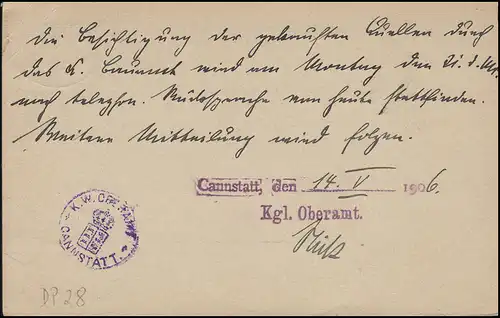 Die Besichtigung der gekauften Quellen durch
das K. Bauamt wird am Montag den 21. d. Mts.
nach telephon. Rücksprache von heute stattfinden.
Weitere Mitteilung wird folgen.
Cannstatt, den 14. V 1906.
Kgl. Oberamt.
K. W. OBERAMT
CANNSTATT.
DP 28